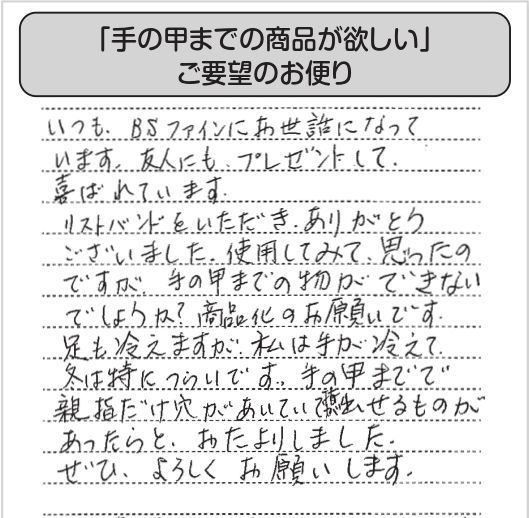 「手の甲までの商品が欲しい」
ご要望のお便り
いつも、BSファインにお世話になって
います。友人にも、プレゼントして、
喜ばれています。
リストバンドをいただき、ありがとう
ございました。使用してみて、思ったの
ですが、手の甲までの物ができない
でしょうか?商品化のお願いです。
足も冷えますが、私は手が冷えて、
冬は特につらいです。手の甲までで
親指だけ穴があいていてせるものが
あったらと、おたよりしました。
ぜひ、よろしくお願いします。